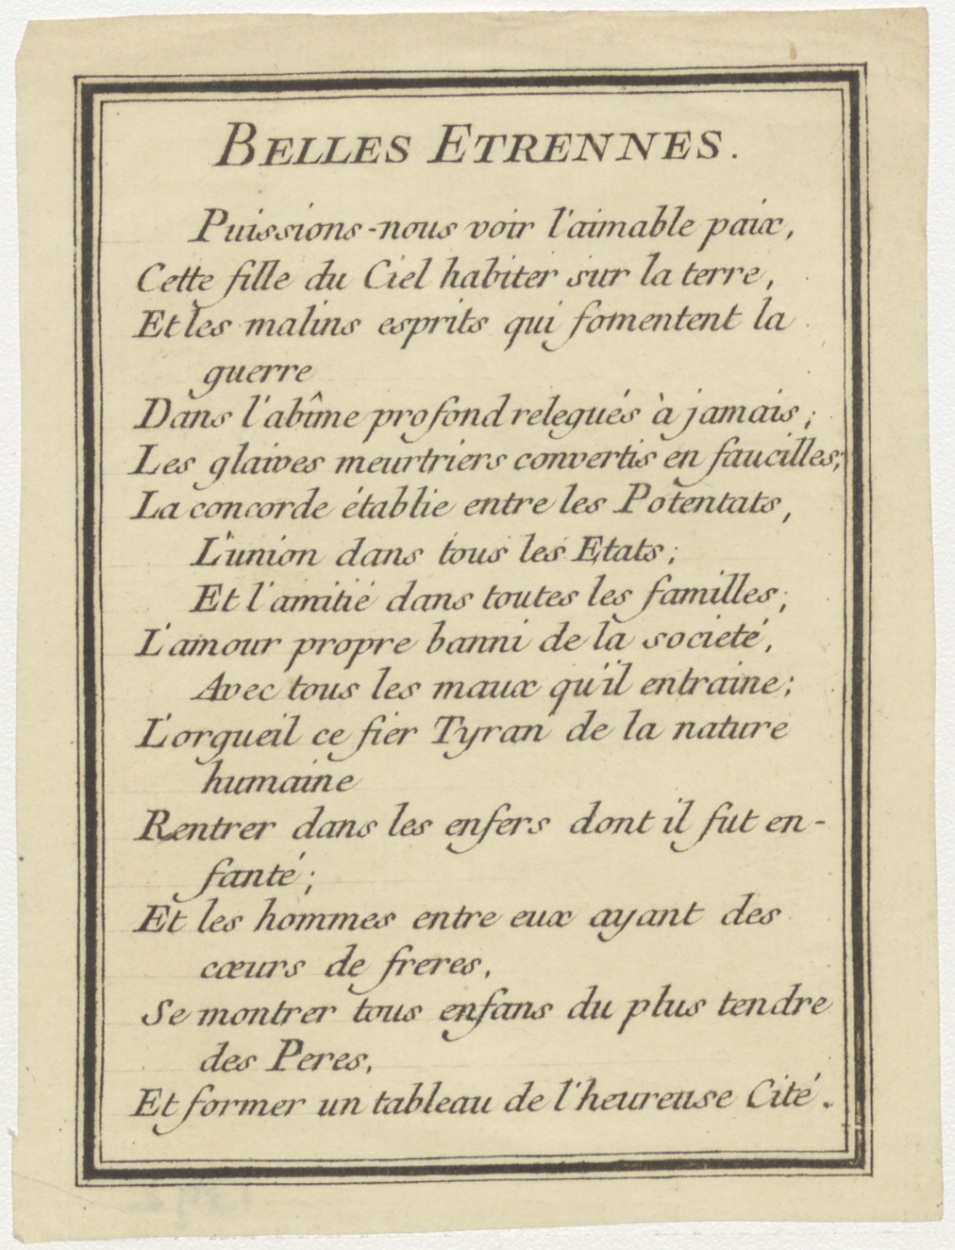 BELLES ETRENNES.
Puissions-nous voir l'aimable paix,
Cette fille du Ciel habiter sur la terre,
Et les malins esprits qui fomentent la
guerre
Dans l'abîme profond relegués à jamais;
Les glaives meurtriers convertis en faucilles;
La concorde établie entre les Potentats,
L'union dans tous les Etats;
Et l'amitié dans toutes les familles;
L'amour propre banni de la societé,
Avec tous les maux qu'il entraine;
L'orgueil ce fier Tyran de la nature
humaine
Rentrer dans les enfers dont il fut en-
fanté;
Et les hommes entre eux ayant des
cœurs de freres,
Se montrer tous enfans du plus tendre
des Peres,
Et former un tableau de l'heureuse Cité.